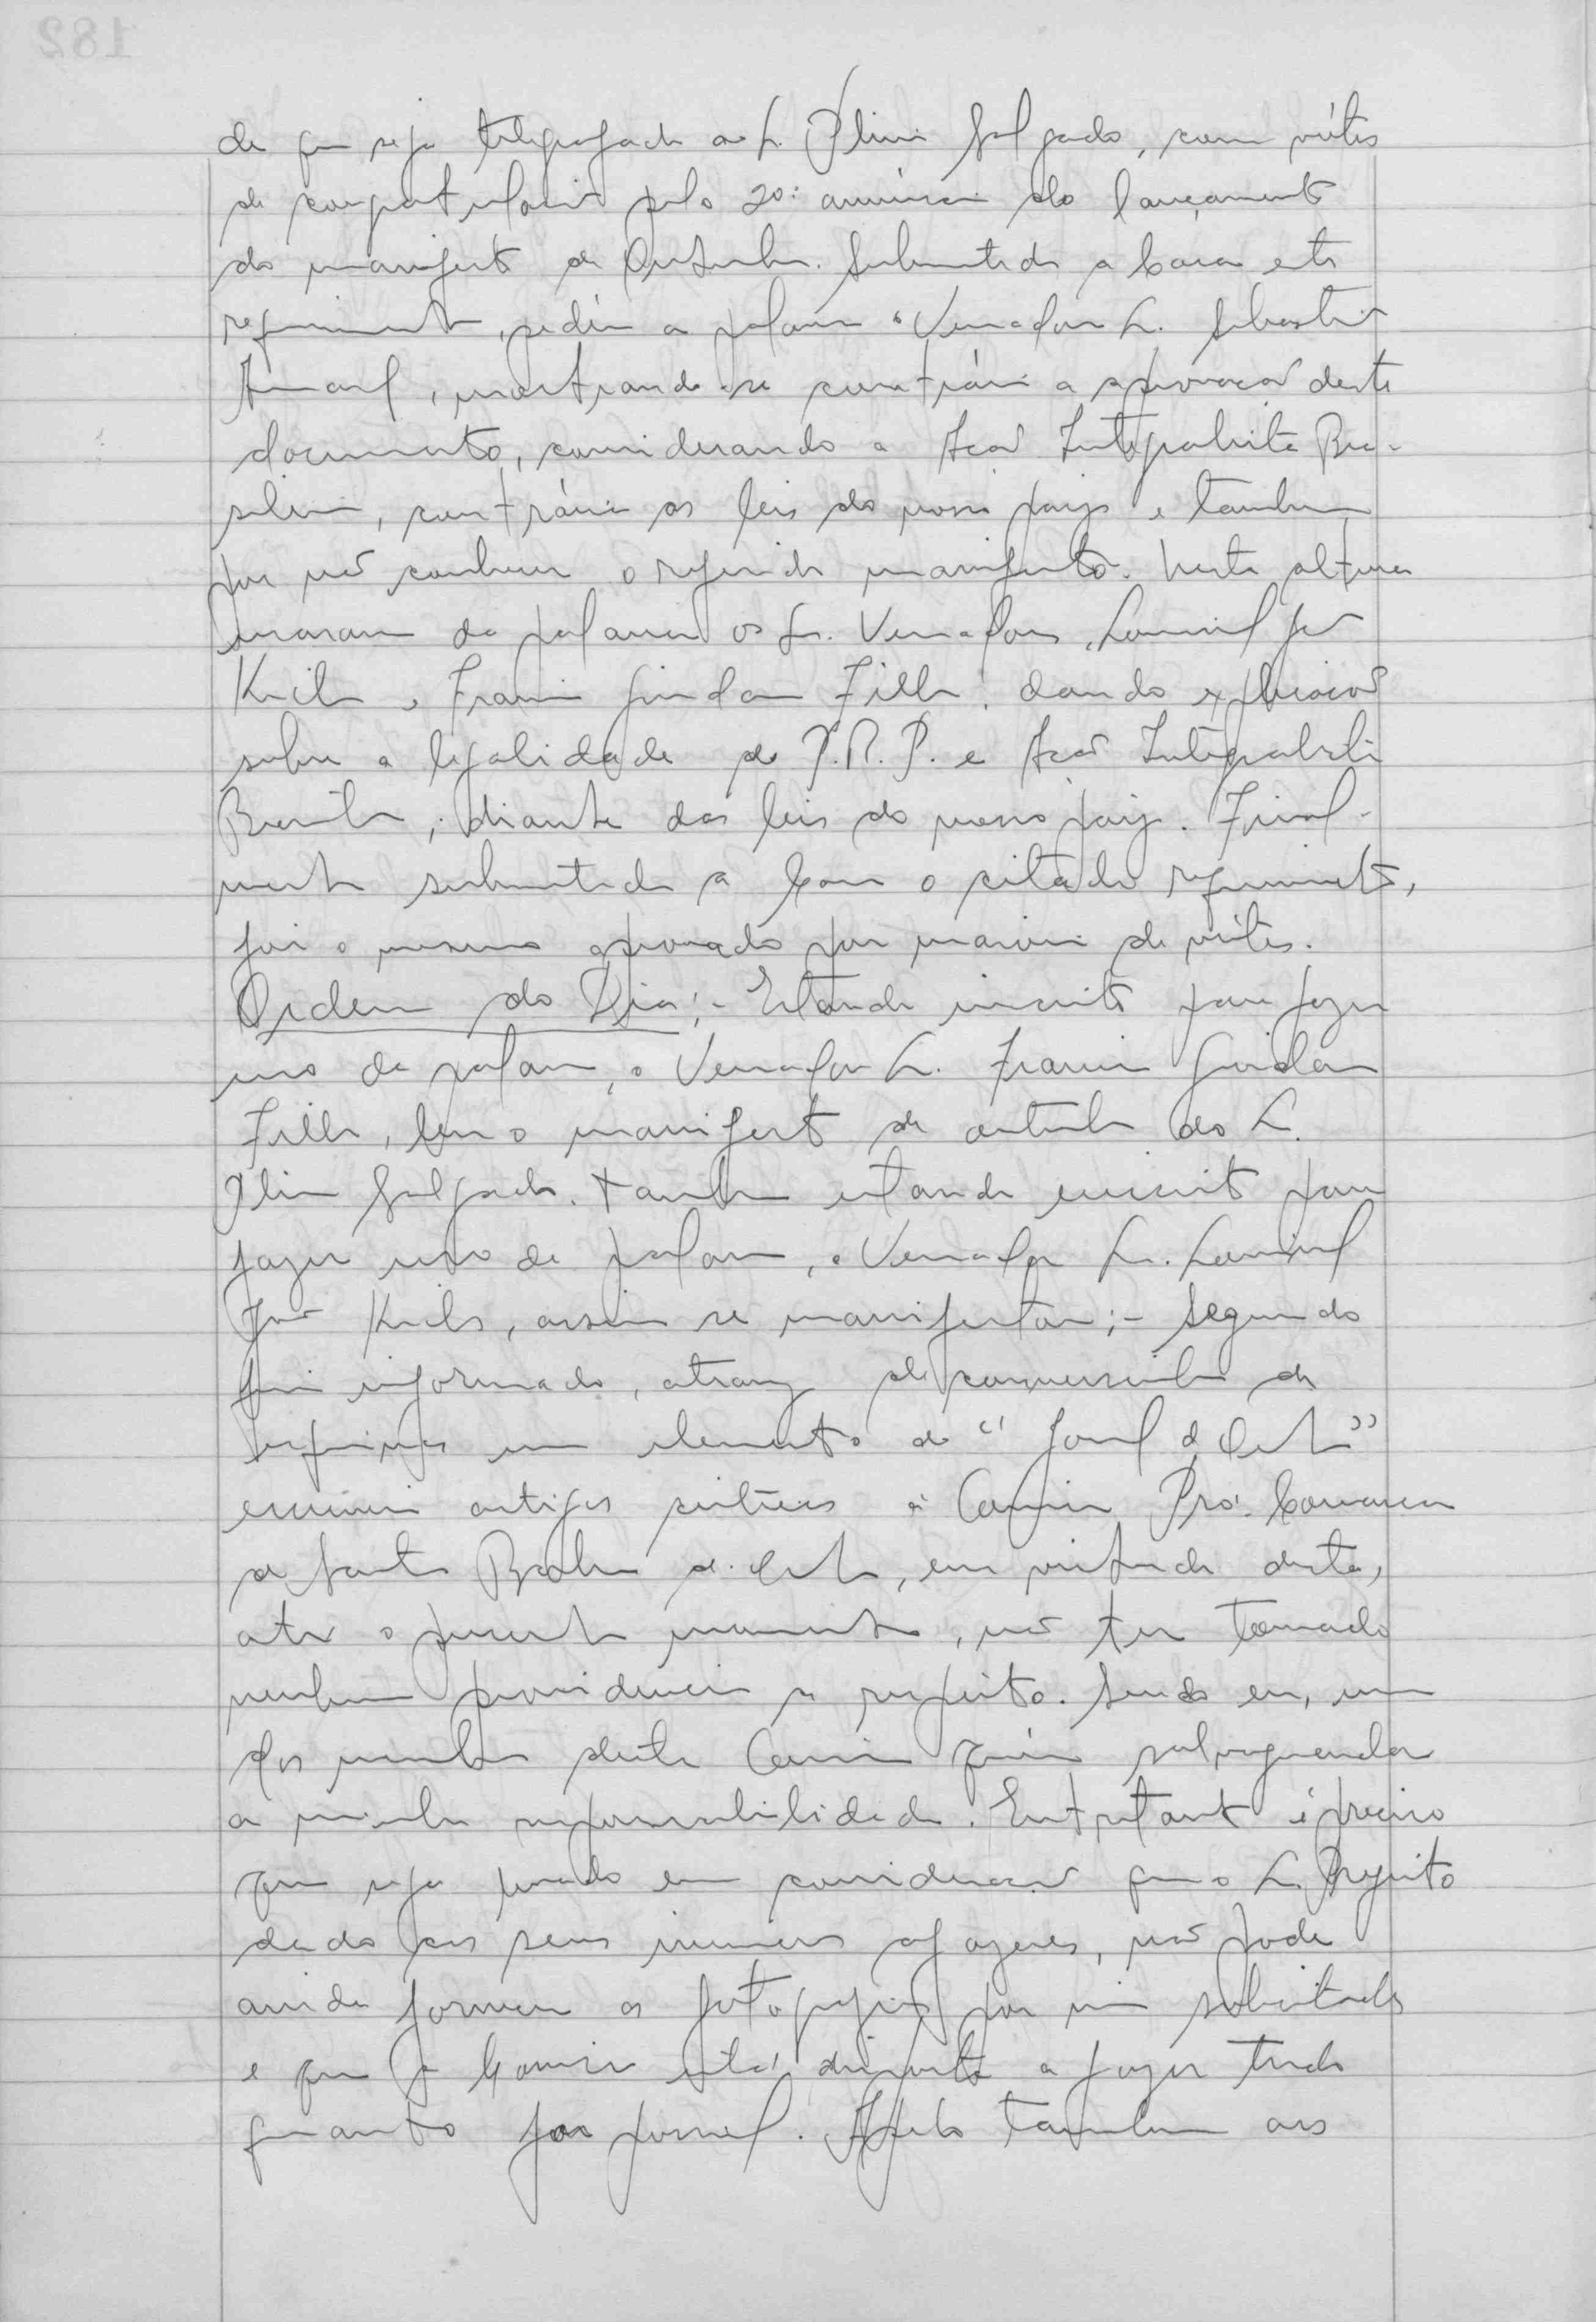 de que seja telegrafado ao Sr. Plinio Salgado, com vótos
de congratulações pelo 20º aniversário do lançamento
do manifesto de Outubro. Submetido a Casa este
requerimento, pediu a palavra o Vereador Sr. Sebastião
Amaral, mostrando-se contrário a aprovação deste
documento, considerando a Ação Integralista Bra-
sileira, contrária as leis do nosso paiz e tambem
por não conhecer o referido manifesto. Nesta altura
usaram da palavra os Srs. Vereadores, José
e Filho, dando explicação
sobre a legalidade do P.R.P. e Ação Integralista
Brasileira, diante das leis do nosso paiz. Final-
mente submetido a Casa o citado requerimento,
foi o mesmo aprovado por maioria de vótos.
Ordem do Dia:- Estando inscrito para fazer
uso da palavra, o Vereador Sr.
Filho, leu o manifesto de outubro do Sr.
Plinio Salgado. Tambem estando inscrito para
fazer uso da palavra, o Vereador Sr.
José, assim se manifestou:- Segundo
fui informado, atravez de
um elemento do "Jornal d'Oeste"
escreveu artigos criticos á Comissão Pró-Comarca
de Santa Barbara d'Oeste, em virtude desta,
até o presente momento, não ter tomado
nenhuma providencia a respeito. Sendo eu, um
dos membros desta Comissão quero salvaguardar
a minha responsabilidade. Entretanto é preciso
que seja levado em consideração que o Sr. Prefeito
dado aos seus inumeros afazeres, não pode
ainda fornecer as fotografias por mim solicitadas
e que a Comissão está disposta a fazer tudo
quanto for possivel. Apelo tambem aos